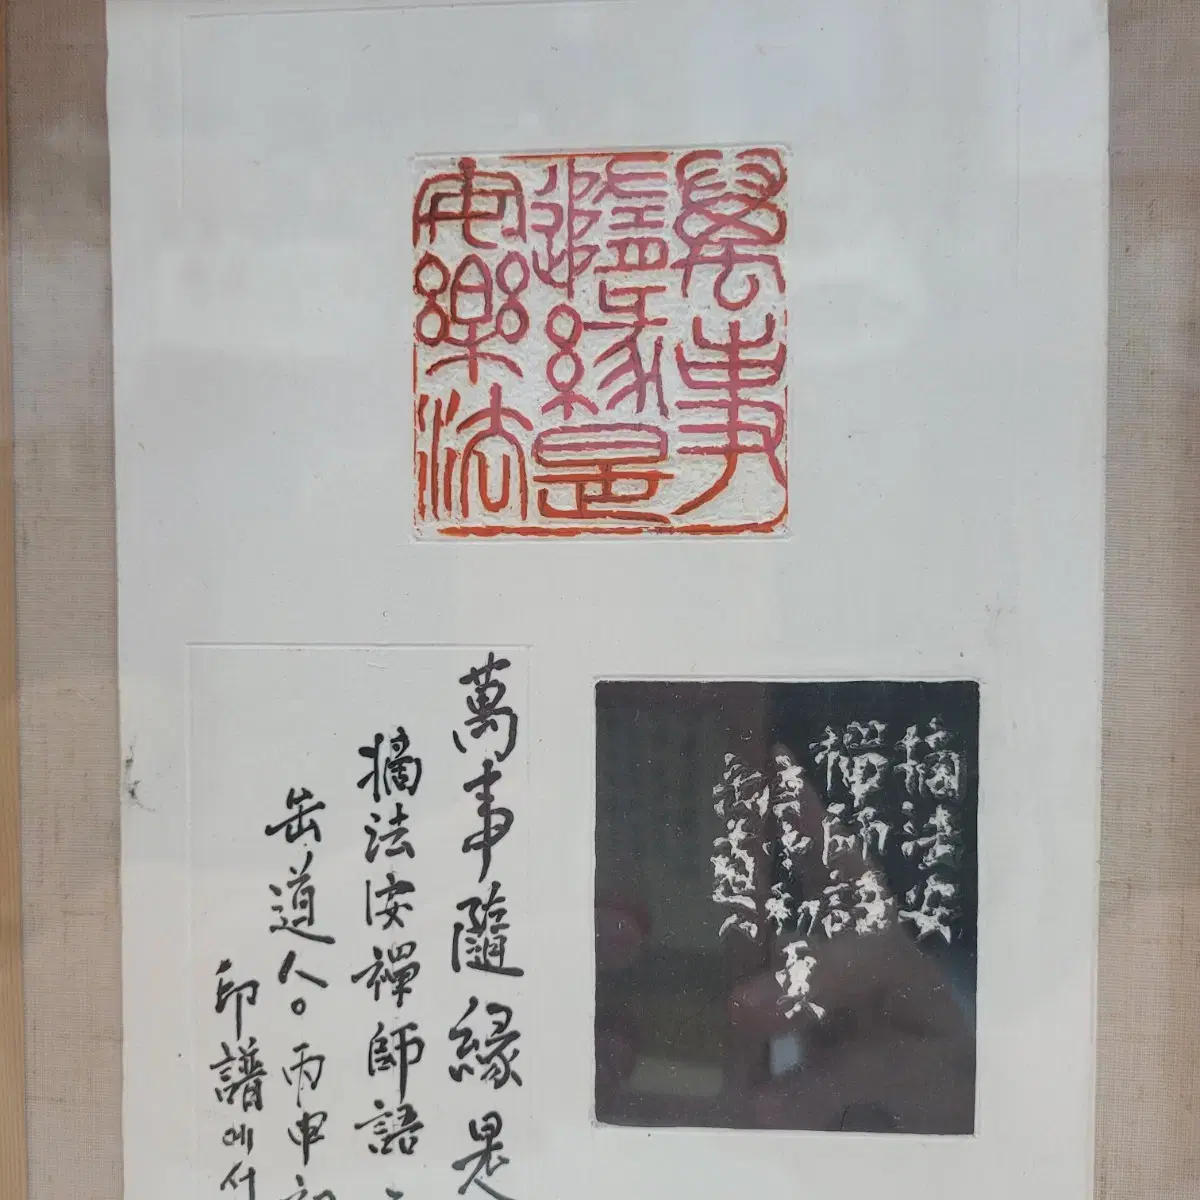 萬事
隨緣是
安樂法
萬事隨緣是
摘法安禪師語
缶道人。丙申初
印譜에서
摘法安
禪師語
道人